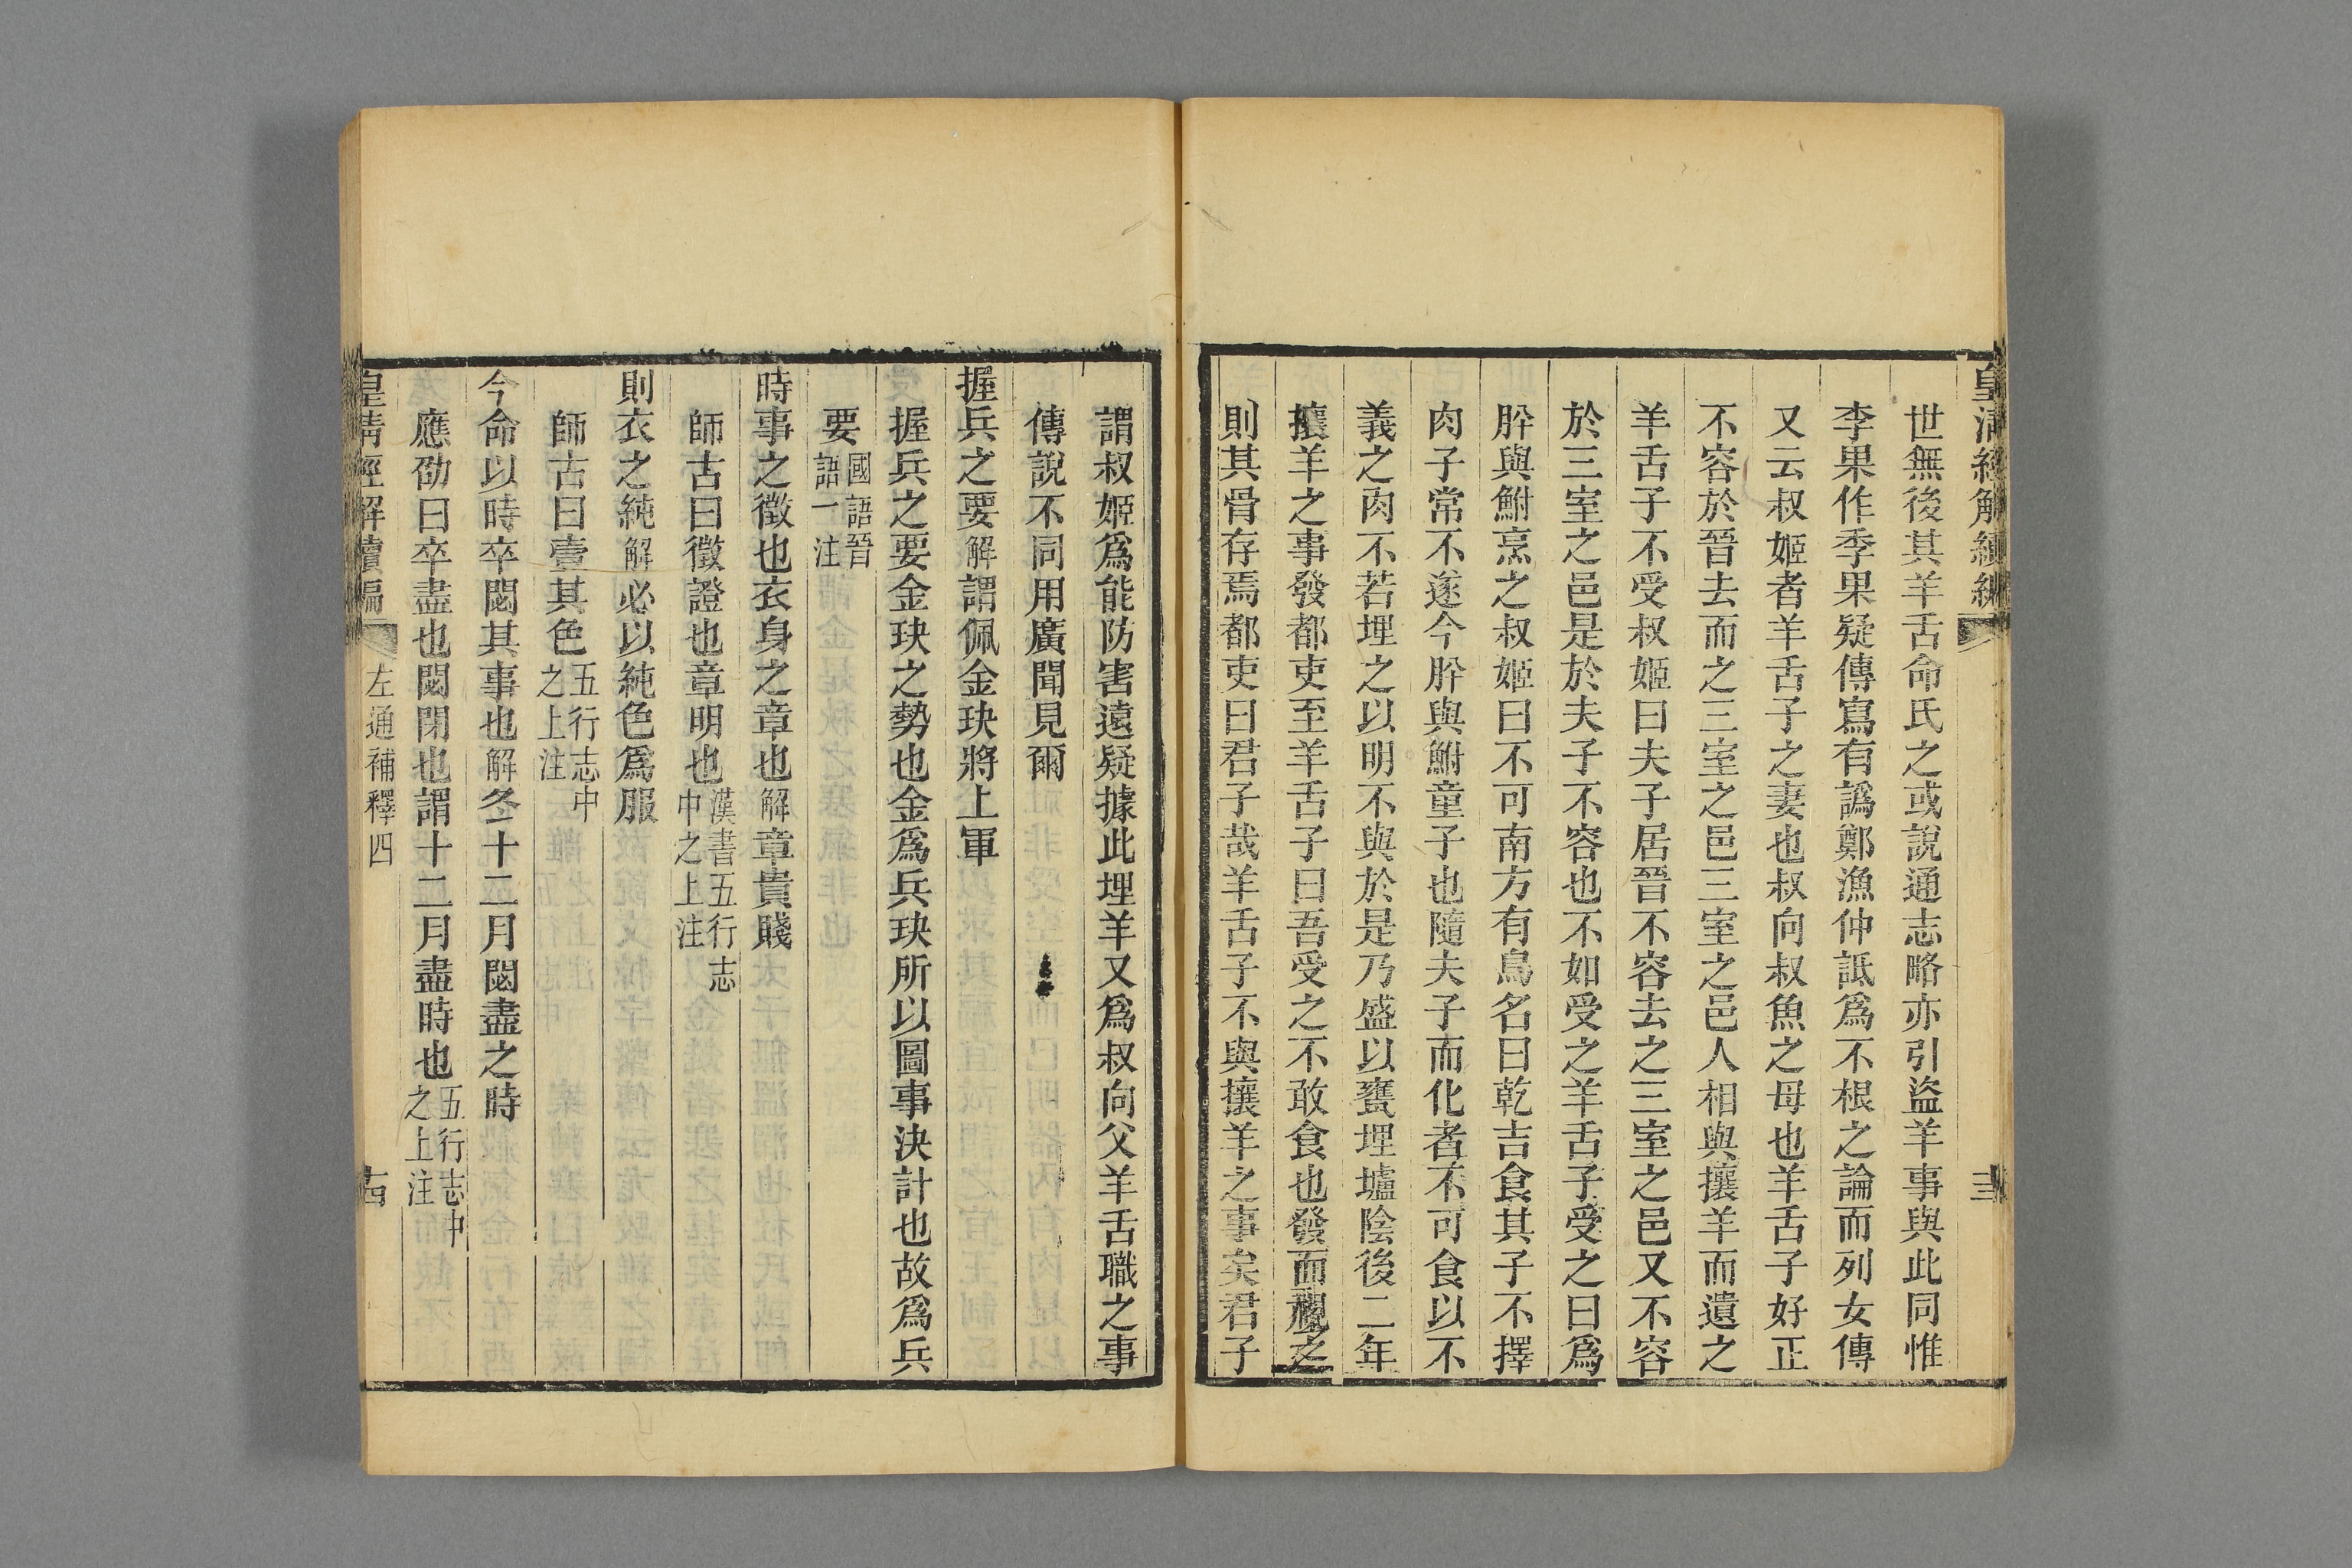 皇清經解續編
十三
世無後其羊舌命氏之或說通志略亦引盜羊事與此同惟
李果作季果疑傳寫有譌鄭漁仲詆爲不根之論而列女傳
又云叔姬者羊舌子之妻也叔向叔魚之母也羊舌子好正
不容於晉去而之三室之邑三室之邑人相與攘羊而遺之
羊舌子不受叔姬曰夫子居晉不容去之三室之邑又不容
於三室之邑是於夫子不容也不如受之羊舌子受之曰爲
肸與鮒烹之叔姬曰不可南方有鳥名曰乾吉食其子不擇
肉子常不遂今肸與鮒童子也隨夫子而化者不可食以不
義之肉不若埋之以明不與於是乃盛以甕埋壚陰後二年
攘羊之事發都吏至羊舌子曰吾受之不敢食也發而視之
則其骨存焉都吏曰君子哉羊舌子不與攘羊之事矣君子
謂叔姬爲能防害遠疑據此埋羊又爲叔向父羊舌職之事
傳說不同用廣聞見爾
握兵之要解謂佩金玦將上軍
握兵之要金玦之勢也金爲兵玦所以圖事決計也故爲兵
要國語晉語一注
時事之徵也衣身之章也解章貴賤
師古曰徵證也章明也漢書五行志中之上注
則衣之純解必以純色爲服
師古曰壹其色五行志中之上注
今命以時卒閟其事也解冬十二月閟盡之時
應劭曰卒盡也閟閉也謂十二月盡時也五行志中之上注
皇清經解續編
左通補釋四
十四